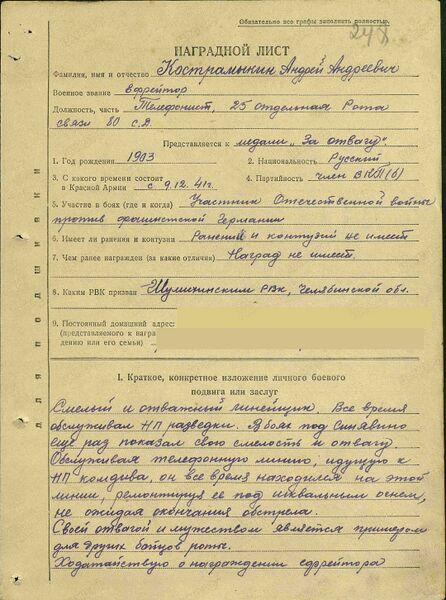 Обязательно все графы заполнить полностью.
248
НАГРАДНОЙ ЛИСТ
Фамилия, имя и отчество Кострамыкин Андрей Андреевич
Военное звание ефрейтор
Должность, часть Телефонист, 25 отдельная Рота
связи 80 с.д.
Представляется к медали „За отвагу".
1. Год рождения 1903
2. Национальность Русский
3. С какого времени состоит
в Красной Армии с 9.12.41г.
4. Партийность член ВКП(б)
5. Участие в боях (где и когда) Участник Отечественной войны
против фашистской Германии
6. Имеет ли ранения и контузии Ранений и контузий не имеет
7. Чем ранее награжден (за какие отличия) Наград не имеет.
8. Каким РВК призван Шумихинским РВК, Челябинской обл.
9. Постоянный домашний адрес:
(представляемого к награ
дению или его семьи)
для подшивки
I. Краткое, конкретное изложение личного боевого
подвига или заслуг
Смелый и отважный линейщик. Все время
обслуживал НП разведки. В боях под Синявино
еще раз показал свою смелость и отвагу.
Обслуживая телефонную линию, идущую к
НП комдива, он все время находился на этой
линии, ремонтируя ее под шквальным огнем,
не ожидая окончания обстрела.
Своей отвагой и мужеством является примером
для других бойцов роты.
Ходатайствую о награждении ефрейтора